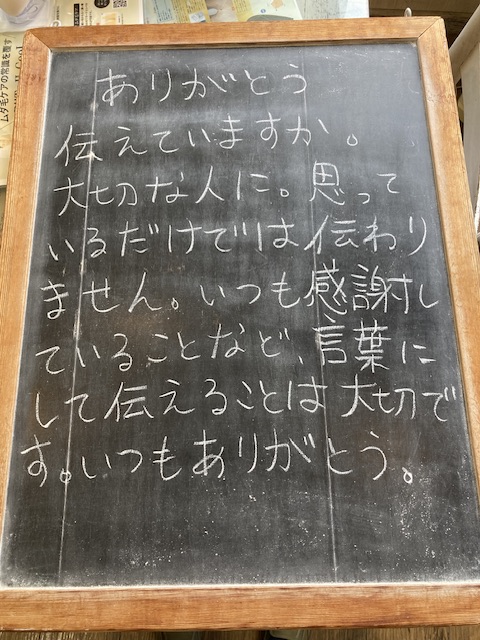 ありがとう
伝えていますか。
大切な人に。思って
いるだけでは伝わり
ません。いつも感謝し
ていることなど、言葉に
して伝えることは大切で
す。いつもありがとう。
ムダ毛ケアの常識を覆す